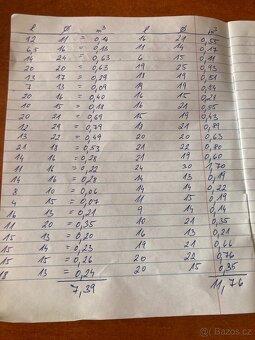 l ø m³ l ø m³
12 11 = 0,11 16 21 0,55
6,5 16 = 0,13 11 14 0,17
14 24 = 0,63 6 15 0,11
20 20 = 0,63 19 25 0,93
13 17 = 0,29 18 19 0,51
7 13 = 0,09 14 18
20 16 = 0,40 16 15
10 15 = 0,18 16 21 0,55
20 21 = 0,69 15 19 0,43
12 29 = 0,79 13 0,89
13 22 = 0,49 20 20 0,63
21 18 = 0,53 21 22 0,80
14 16 = 0,28 21 19 0,60
11 16 = 0,22 24 30 1,70
14 16 = 0,28 14 13 0,19
8 10 = 0,06 14 14 0,22
4 15 = 0,07 11 15 0,19
16 13 = 0,21 9 14 0,14
11 20 = 0,35 10 21 0,35
15 13 = 0,20 16 13 0,21
15 14 = 0,23 19 21 0,66
15 15 = 0,26 20 22 0,76
18 13 = 0,24 20 15 0,35
7,39 11,76
sbazar.cz